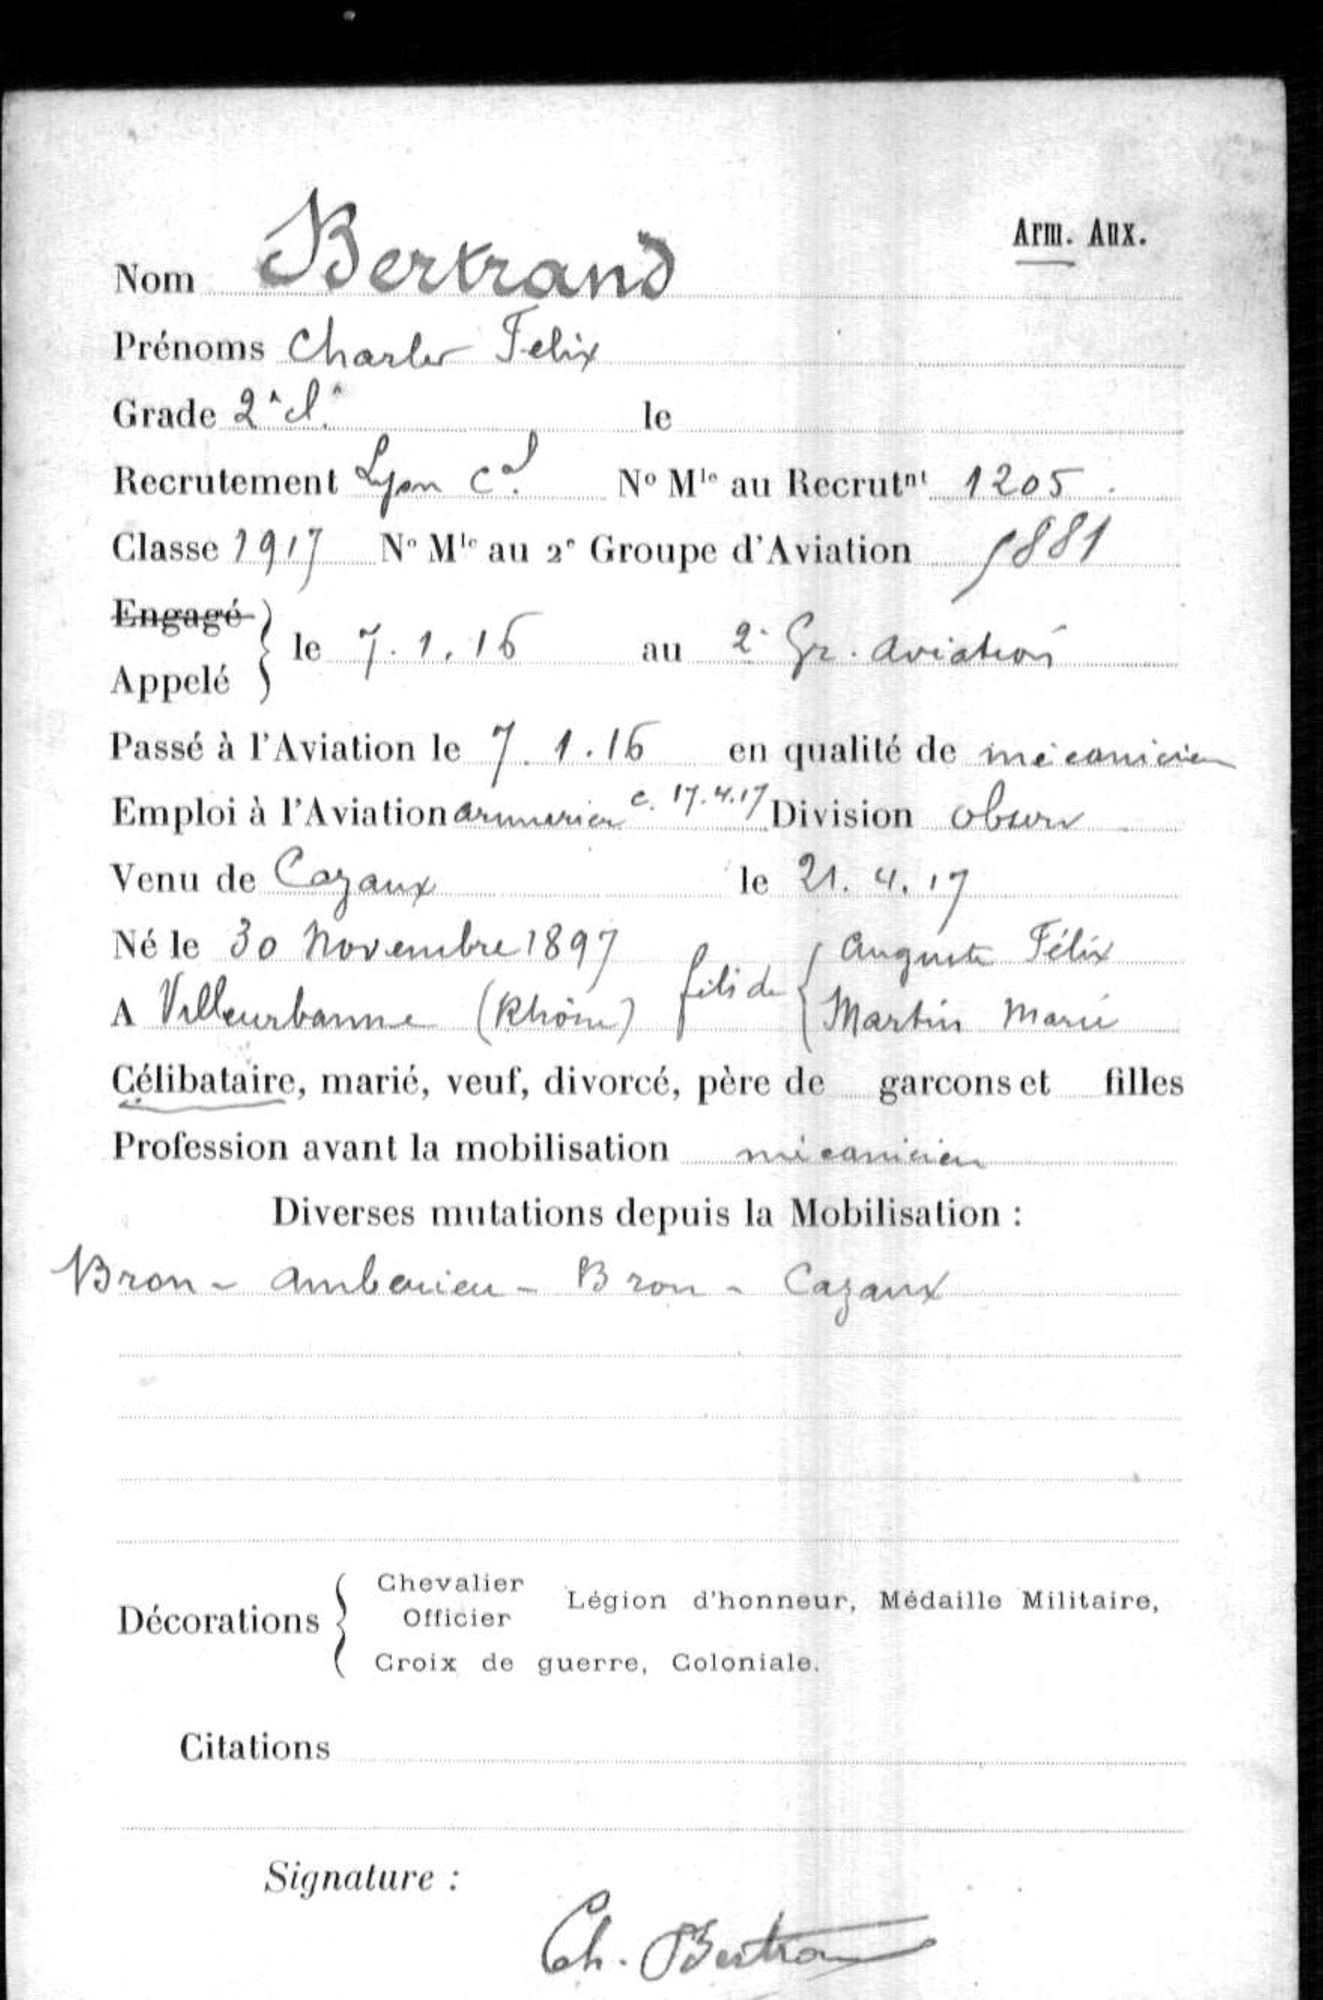 Arm. Aux.
Nom Bertrand
Prénoms Charles Felix
Grade 2e cl. le
Recrutement Lyon cal. No Mle au Recrutnt 1205
Classe 1917 No Mle au 2e Groupe d'Aviation 5881
Engagé
Appelé } le 7.1.16 au 2e Gr. aviation
Passé à l'Aviation le 7.1.16 en qualité de mécanicien
Emploi à l'Aviation armurier c. 17.4.17 Division observ
Venu de Cazaux le 21.4.17
Né le 30 Novembre 1897 fils de { Auguste Félix
A Villeurbanne (Rhône) Martin Marie
Célibataire, marié, veuf, divorcé, père de garcons et filles
Profession avant la mobilisation mécanicien
Diverses mutations depuis la Mobilisation :
Bron - Amberieu - Bron - Cazaux
Décorations { Chevalier
Officier Légion d'honneur, Médaille Militaire,
Croix de guerre, Coloniale.
Citations
Signature :
Ch. Bertrand